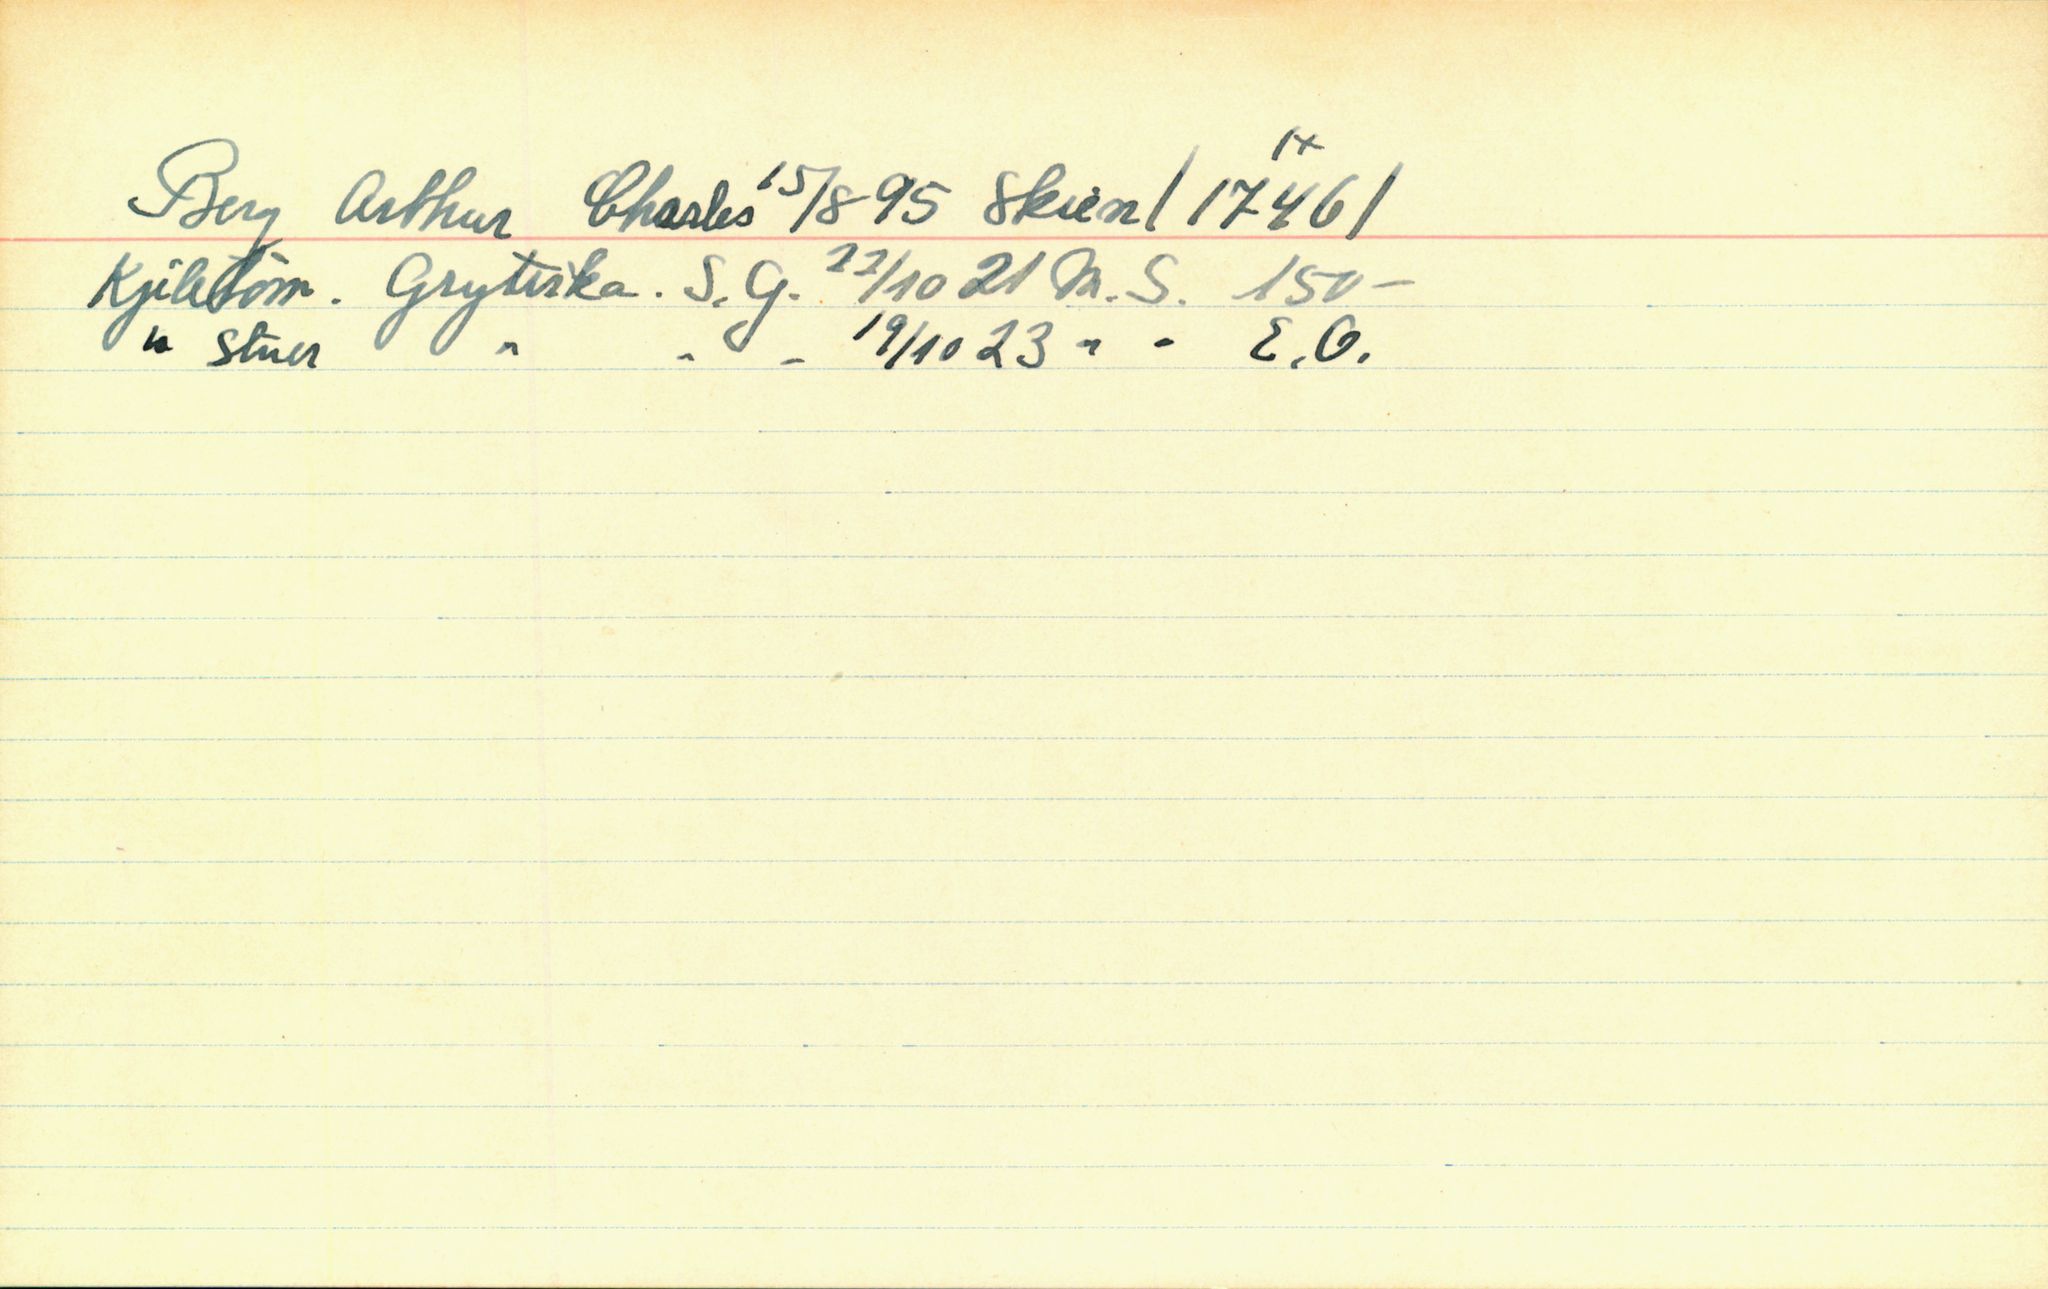 1x
Berg Arthur Charles 15/8-95 Skien / 1746 /
Kjilstøm. Grytvika. S. G. 22/10 21 M. S. 150-
" Stuer " " - 19/10 23 " - E. O.